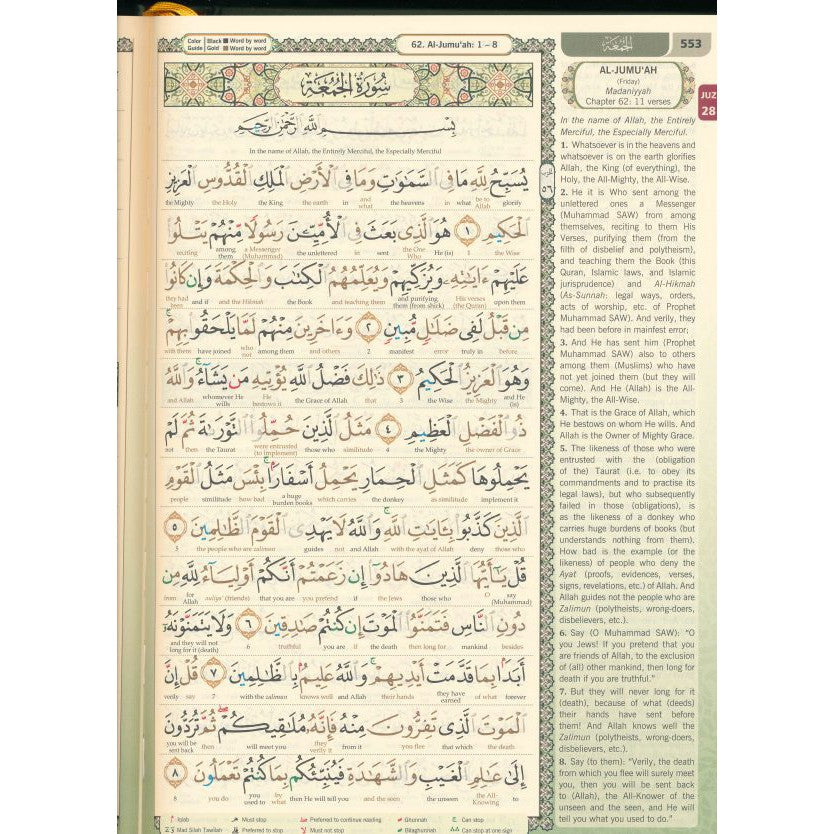 Color Guide | Black Gold | Word by word Word by word
62. Al-Jumu'ah: 1 ~ 8
الجمعة
553
JUZ 28
سُورَةُ الْجُمُعَةِ
بِسْمِ اللَّهِ الرَّحْمَٰنِ الرَّحِيمِ
In the name of Allah, the Entirely Merciful, the Especially Merciful
يُسَبِّحُ لِلَّهِ مَا فِي السَّمَاوَاتِ وَمَا فِي الْأَرْضِ الْمَلِكِ الْقُدُّوسِ الْعَزِيزِ
the Mighty the Holy the King the earth in and what the heavens in what be to Allah glorify
الْحَكِيمِ ١ هُوَ الَّذِي بَعَثَ فِي الْأُمِّيِّينَ رَسُولًا مِنْهُمْ يَتْلُوا
reciting among them a Messenger (Muhammad) the unlettered in sent the One Who He (is) 1 the Wise
عَلَيْهِمْ آيَاتِهِ وَيُزَكِّيهِمْ وَيُعَلِّمُهُمُ الْكِتَابَ وَالْحِكْمَةَ وَإِنْ كَانُوا
they had been and if and the Hikmah the Book and teaching them and purifying them (from shirk) His verses (the Quran) upon them
مِنْ قَبْلُ لَفِي ضَلَالٍ مُبِينٍ ٢ وَآخَرِينَ مِنْهُمْ لَمَّا يَلْحَقُوا بِهِمْ
with them have joined who not among them and others 2 manifest error truly in before
وَهُوَ الْعَزِيزُ الْحَكِيمُ ٣ ذَٰلِكَ فَضْلُ اللَّهِ يُؤْتِيهِ مَنْ يَشَاءُ وَاللَّهُ
and Allah whomever He wills He bestows it the Grace of Allah that 3 the Wise the Mighty and He (is)
ذُو الْفَضْلِ الْعَظِيمِ ٤ مَثَلُ الَّذِينَ حُمِّلُوا التَّوْرَاةَ ثُمَّ لَمْ
not then the Taurat were entrusted (to implement) those who similitude 4 the Mighty the owner of Grace
يَحْمِلُوهَا كَمَثَلِ الْحِمَارِ يَحْمِلُ أَسْفَارًا بِئْسَ مَثَلُ الْقَوْمِ
people similitude how bad a huge burden books which carries the donkey as similitude implement it
الَّذِينَ كَذَّبُوا بِآيَاتِ اللَّهِ وَاللَّهُ لَا يَهْدِي الْقَوْمَ الظَّالِمِينَ ٥
5 the people who are zalimun guides not and Allah with the ayat of Allah deny those who
قُلْ يَا أَيُّهَا الَّذِينَ هَادُوا إِنْ زَعَمْتُمْ أَنَّكُمْ أَوْلِيَاءُ لِلَّهِ مِنْ
from for Allah auliya' (friends) that you are you pretend if the Jews those who O say (Muhammad)
دُونِ النَّاسِ فَتَمَنَّوُا الْمَوْتَ إِنْ كُنْتُمْ صَادِقِينَ ٦ وَلَا يَتَمَنَّوْنَهُ
and they will not long for it (death) 6 truthful you are if the death then long for mankind besides
أَبَدًا بِمَا قَدَّمَتْ أَيْدِيهِمْ وَاللَّهُ عَلِيمٌ بِالظَّالِمِينَ ٧ قُلْ إِنَّ
verily say 7 with the zalimun knows well and Allah their hands they have earned of what forever
الْمَوْتَ الَّذِي تَفِرُّونَ مِنْهُ فَإِنَّهُ مُلَاقِيكُمْ ثُمَّ تُرَدُّونَ
you will be sent back then will meet you they verily it from it you flee that which the death
إِلَىٰ عَالِمِ الْغَيْبِ وَالشَّهَادَةِ فَيُنَبِّئُكُمْ بِمَا كُنْتُمْ تَعْمَلُونَ ٨
8 you do you used to by what then He will tell you and the seen the unseen the All-Knowing to
Iqlab Must stop Preferred to continue reading Ghunnah Can stop
Mad Silah Tawilah Preferred to stop Must not stop Bilaghunnah Can stop at one sign
AL-JUMU'AH
(Friday)
Madaniyyah
Chapter 62: 11 verses
In the name of Allah, the Entirely
Merciful, the Especially Merciful.
1. Whatsoever is in the heavens and
whatsoever is on the earth glorifies
Allah, the King (of everything), the
Holy, the All-Mighty, the All-Wise.
2. He it is Who sent among the
unlettered ones a Messenger
(Muhammad SAW) from among
themselves, reciting to them His
Verses, purifying them (from the
filth of disbelief and polytheism),
and teaching them the Book (this
Quran, Islamic laws, and Islamic
jurisprudence) and Al-Hikmah
(As-Sunnah: legal ways, orders,
acts of worship, etc. of Prophet
Muhammad SAW). And verily, they
had been before in mainfest error;
3. And He has sent him (Prophet
Muhammad SAW) also to others
among them (Muslims) who have
not yet joined them (but they will
come). And He (Allah) is the All-
Mighty, the All-Wise.
4. That is the Grace of Allah, which
He bestows on whom He wills. And
Allah is the Owner of Mighty Grace.
5. The likeness of those who were
entrusted with the (obligation
of the) Taurat (i.e. to obey its
commandments and to practise its
legal laws), but who subsequently
failed in those (obligations), is
as the likeness of a donkey who
carries huge burdens of books (but
understands nothing from them).
How bad is the example (or the
likeness) of people who deny the
Ayat (proofs, evidences, verses,
signs, revelations, etc.) of Allah. And
Allah guides not the people who are
Zalimun (polytheists, wrong-doers,
disbelievers, etc.).
6. Say (O Muhammad SAW): "O
you Jews! If you pretend that you
are friends of Allah, to the exclusion
of (all) other mankind, then long for
death if you are truthful."
7. But they will never long for it
(death), because of what (deeds)
their hands have sent before
them! And Allah knows well the
Zalimun (polytheists, wrong-doers,
disbelievers, etc.).
8. Say (to them): "Verily, the death
from which you flee will surely meet
you, then you will be sent back
to (Allah), the All-Knower of the
unseen and the seen, and He will
tell you what you used to do."